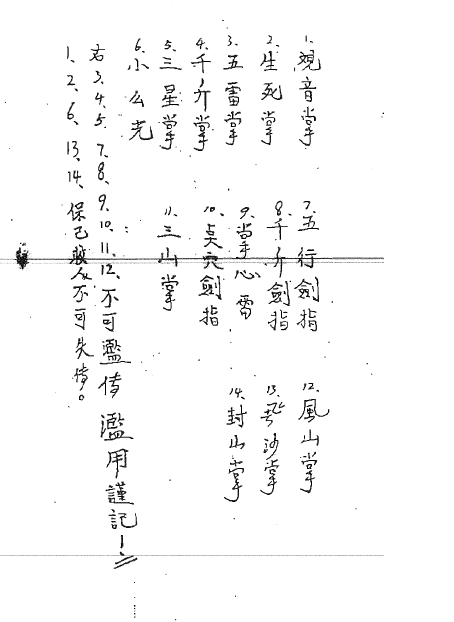 1.觀音掌
2.生死掌
3.五雷掌
4.千斤掌
5.三星掌
6.小么光
7.五行劍指
8.千斤劍指
9.掌心雷
10.点穴劍指
11.三山掌
12.風山掌
13.飛沙掌
14.封山掌
右3.4.5.7.8.9.10.11.12.不可濫传濫用謹記!
1.2.6.13.14.保己救人不可失传。